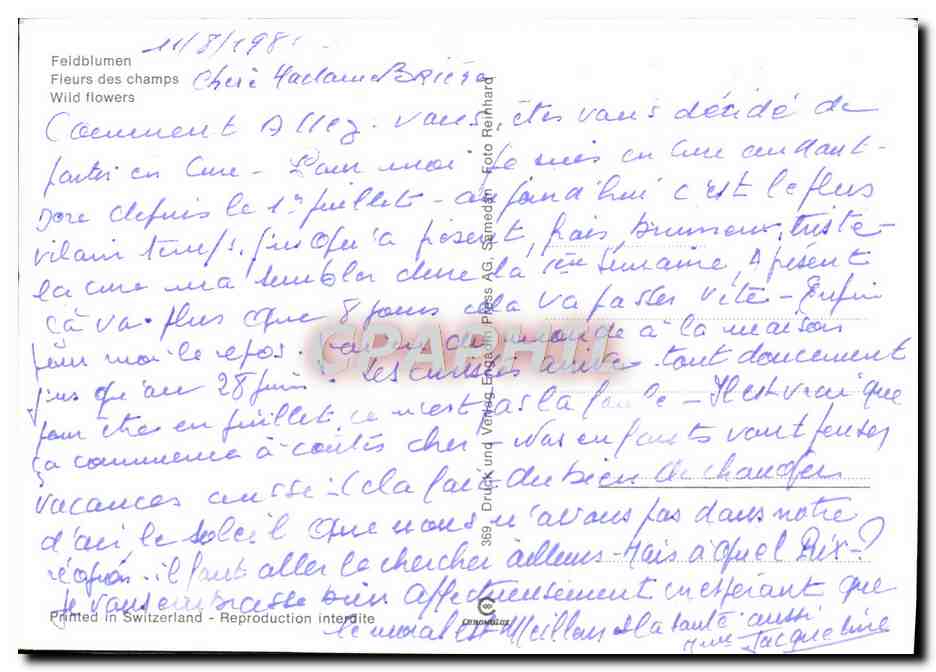 11/8/198
Feldblumen
Fleurs des champs
Wild flowers
Chère Madame Brière
Comment Allez-vous, êtes vous décidé de
partir en Cure - Pour moi je suis en Cure au dant-
Dore depuis le 1er juillet - aujourd'hui c'est le plus
vilain temps jusqu'à présent, frais, brumeux, triste -
la cure m'a semblée dure la 1ère Semaine, A présent
çà va. plus que 8 jours cela va passer vite - Enfin
pour moi le repos. du monde à la maison
jusqu'au 28 juin. Les curistes arrive tout doucement
pour être en juillet ce n'est pas la foule - Il est vrai que
ça commence à coûtés cher - Vos enfants vont penser
vacances aussi cela fait du bien de changer
d'air le soleil que nous n'avons pas dans notre
région. il faut aller le chercher ailleurs - Mais à quel Prix - ?
Je vous embrasse bien Affectueusement en espérant que
le moral est Meilleur et la santé aussi
Mme Jacqueline
369 Druck und Verlag Engadin Press AG, Samedan Foto Reinhard
Printed in Switzerland - Reproduction interdite
CPAPHIL